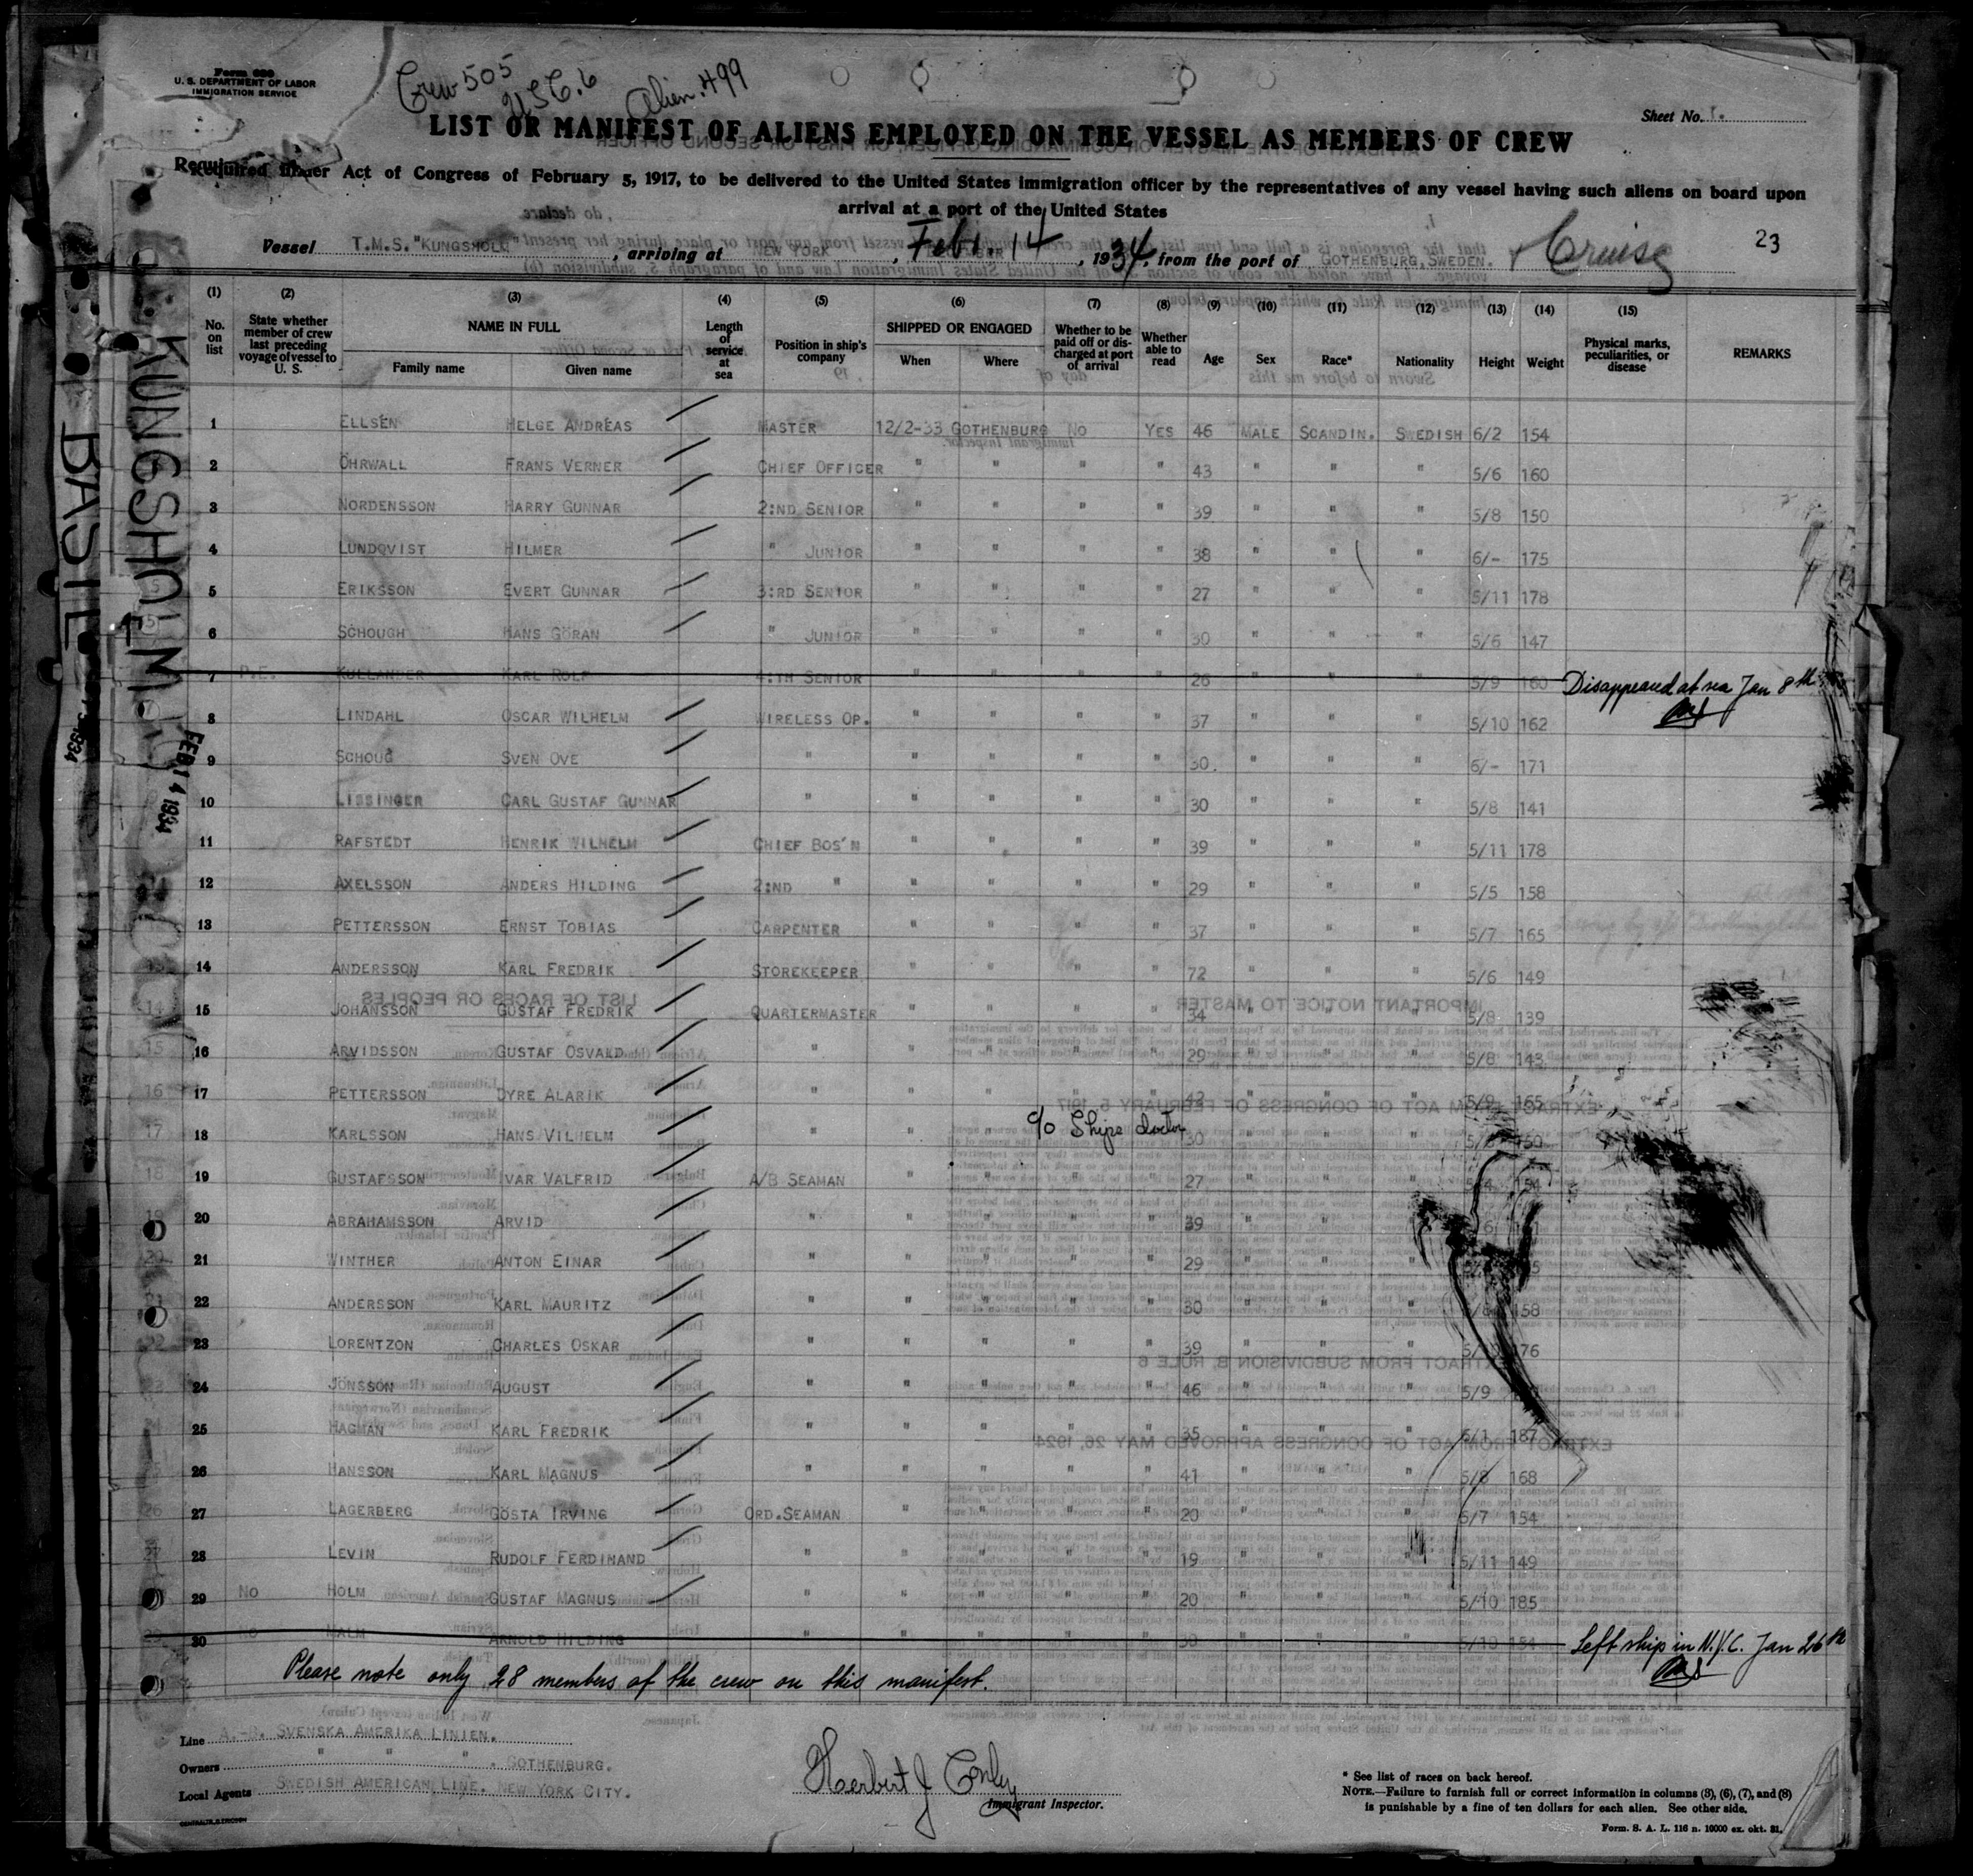 Form 680
U. S. DEPARTMENT OF LABOR
IMMIGRATION SERVICE
Crew 505
USC. 6
Alien. 499
Sheet No. 1.
LIST OR MANIFEST OF ALIENS EMPLOYED ON THE VESSEL AS MEMBERS OF CREW
Required under Act of Congress of February 5, 1917, to be delivered to the United States immigration officer by the representatives of any vessel having such aliens on board upon
arrival at a port of the United States
Vessel T.M.S. "KUNGSHOLM", arriving at NEW YORK, Feb. 14, 1934, from the port of GOTHENBURG, SWEDEN. + Cruise 23
(1) (2) (3) (4) (5) (6) (7) (8) (9) (10) (11) (12) (13) (14) (15)
No. on list State whether member of crew last preceding voyage of vessel to U. S. NAME IN FULL Family name Given name Length of service at sea Position in ship's company SHIPPED OR ENGAGED When Where Whether to be paid off or discharged at port of arrival Whether able to read Age Sex Race* Nationality Height Weight Physical marks, peculiarities, or disease REMARKS
1 ELLSÉN HELGE ANDREAS MASTER 12/2-33 GOTHENBURG NO YES 46 MALE SCANDIN. SWEDISH 6/2 154
2 ÖHRWALL FRANS VERNER CHIEF OFFICER " " " " 43 " " " 5/6 160
3 NORDENSSON HARRY GUNNAR 2:ND SENIOR " " " " 39 " " " 5/8 150
4 LUNDQVIST HILMER " JUNIOR " " " " 38 " " " 6/- 175
5 ERIKSSON EVERT GUNNAR 3:RD SENIOR " " " " 27 " " " 5/11 178
6 SCHOUGH HANS GÖRAN " JUNIOR " " " " 30 " " " 5/6 147
7 P.E. KULLANDER KARL ROLF 4:TH SENIOR " " " " 26 " " " 5/9 160 Disappeared at sea Jan 8th
8 LINDAHL OSCAR WILHELM WIRELESS OP. " " " " 37 " " " 5/10 162
9 SCHOUG SVEN OVE " " " " " 30. " " " 6/- 171
10 LISSINGER CARL GUSTAF GUNNAR " " " " " 30 " " " 5/8 141
11 RAFSTEDT HENRIK WILHELM CHIEF BOS'N " " " " 39 " " " 5/11 178
12 AXELSSON ANDERS HILDING 2:ND " " " " " 29 " " " 5/5 158
13 PETTERSSON ERNST TOBIAS CARPENTER " " " " 37 " " " 5/7 165
14 ANDERSSON KARL FREDRIK STOREKEEPER " " " " 72 " " " 5/6 149
15 JOHANSSON GUSTAF FREDRIK QUARTERMASTER " " " " 34 " " " 5/8 139
16 ARVIDSSON GUSTAF OSVALD " " " " " 29 " " " 5/8 143
17 PETTERSSON DYRE ALARIK " " " " " 42 " " " 5/9 165
18 KARLSSON HANS VILHELM " " " c/o Ships doctor 30 " " " 150
19 GUSTAFSSON IVAR VALFRID A/B SEAMAN " " " " 27 " " " 5/4 154
20 ABRAHAMSSON ARVID " " " " " 39 " " "
21 WINTHER ANTON EINAR " " " " " 29 " " "
22 ANDERSSON KARL MAURITZ " " " " " 30 " " " 158
23 LORENTZON CHARLES OSKAR " " " " " 39 " " " 176
24 JÖNSSON AUGUST " " " " " 46 " " " 5/9
25 HAGMAN KARL FREDRIK " " " " " 35 " " " 6/1 187
26 HANSSON KARL MAGNUS " " " " " 41 " " " 5/8 168
27 LAGERBERG GÖSTA IRVING ORD.SEAMAN " " " " 20 " " " 5/7 154
28 LEVIN RUDOLF FERDINAND " " " " " 19 " " " 5/11 149
29 NO HOLM GUSTAF MAGNUS " " " " " 20 " " " 5/10 185
30 NO MALM ARNOLD HILDING " " " " " 30 " " " 5/10 154 Left ship in N.Y.C. Jan 26th
Please note only 28 members of the crew on this manifest.
Line A.-B. SVENSKA AMERIKA LINIEN.
Owners " " " . GOTHENBURG.
Local Agents SWEDISH AMERICAN LINE. NEW YORK CITY.
Herbert J Conley
Immigrant Inspector.
* See list of races on back hereof.
NOTE.—Failure to furnish full or correct information in columns (3), (6), (7), and (8)
is punishable by a fine of ten dollars for each alien. See other side.
Form. S. A. L. 116 n. 10000 ex. okt. 31.
KUNGSHOLM
FEB 14 1934
BASTE
1934